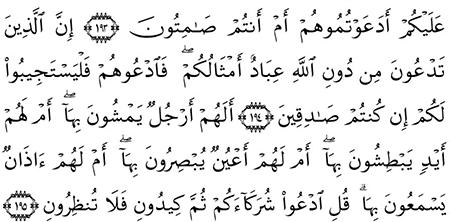 عَلَيْكُمْ أَدَعَوْتُمُوهُمْ أَمْ أَنتُمْ صَـٰمِتُونَ ﴿١٩٣﴾ إِنَّ ٱلَّذِينَ
تَدْعُونَ مِن دُونِ ٱللَّهِ عِبَادٌ أَمْثَالُكُمْ ۖ فَٱدْعُوهُمْ فَلْيَسْتَجِيبُوا۟
لَكُمْ إِن كُنتُمْ صَـٰدِقِينَ ﴿١٩٤﴾ أَلَهُمْ أَرْجُلٌ يَمْشُونَ بِهَآ ۖ أَمْ لَهُمْ
أَيْدٍ يَبْطِشُونَ بِهَآ ۖ أَمْ لَهُمْ أَعْيُنٌ يُبْصِرُونَ بِهَآ ۖ أَمْ لَهُمْ ءَاذَانٌ
يَسْمَعُونَ بِهَا ۗ قُلِ ٱدْعُوا۟ شُرَكَآءَكُمْ ثُمَّ كِيدُونِ فَلَا تُنظِرُونِ ﴿١٩٥﴾